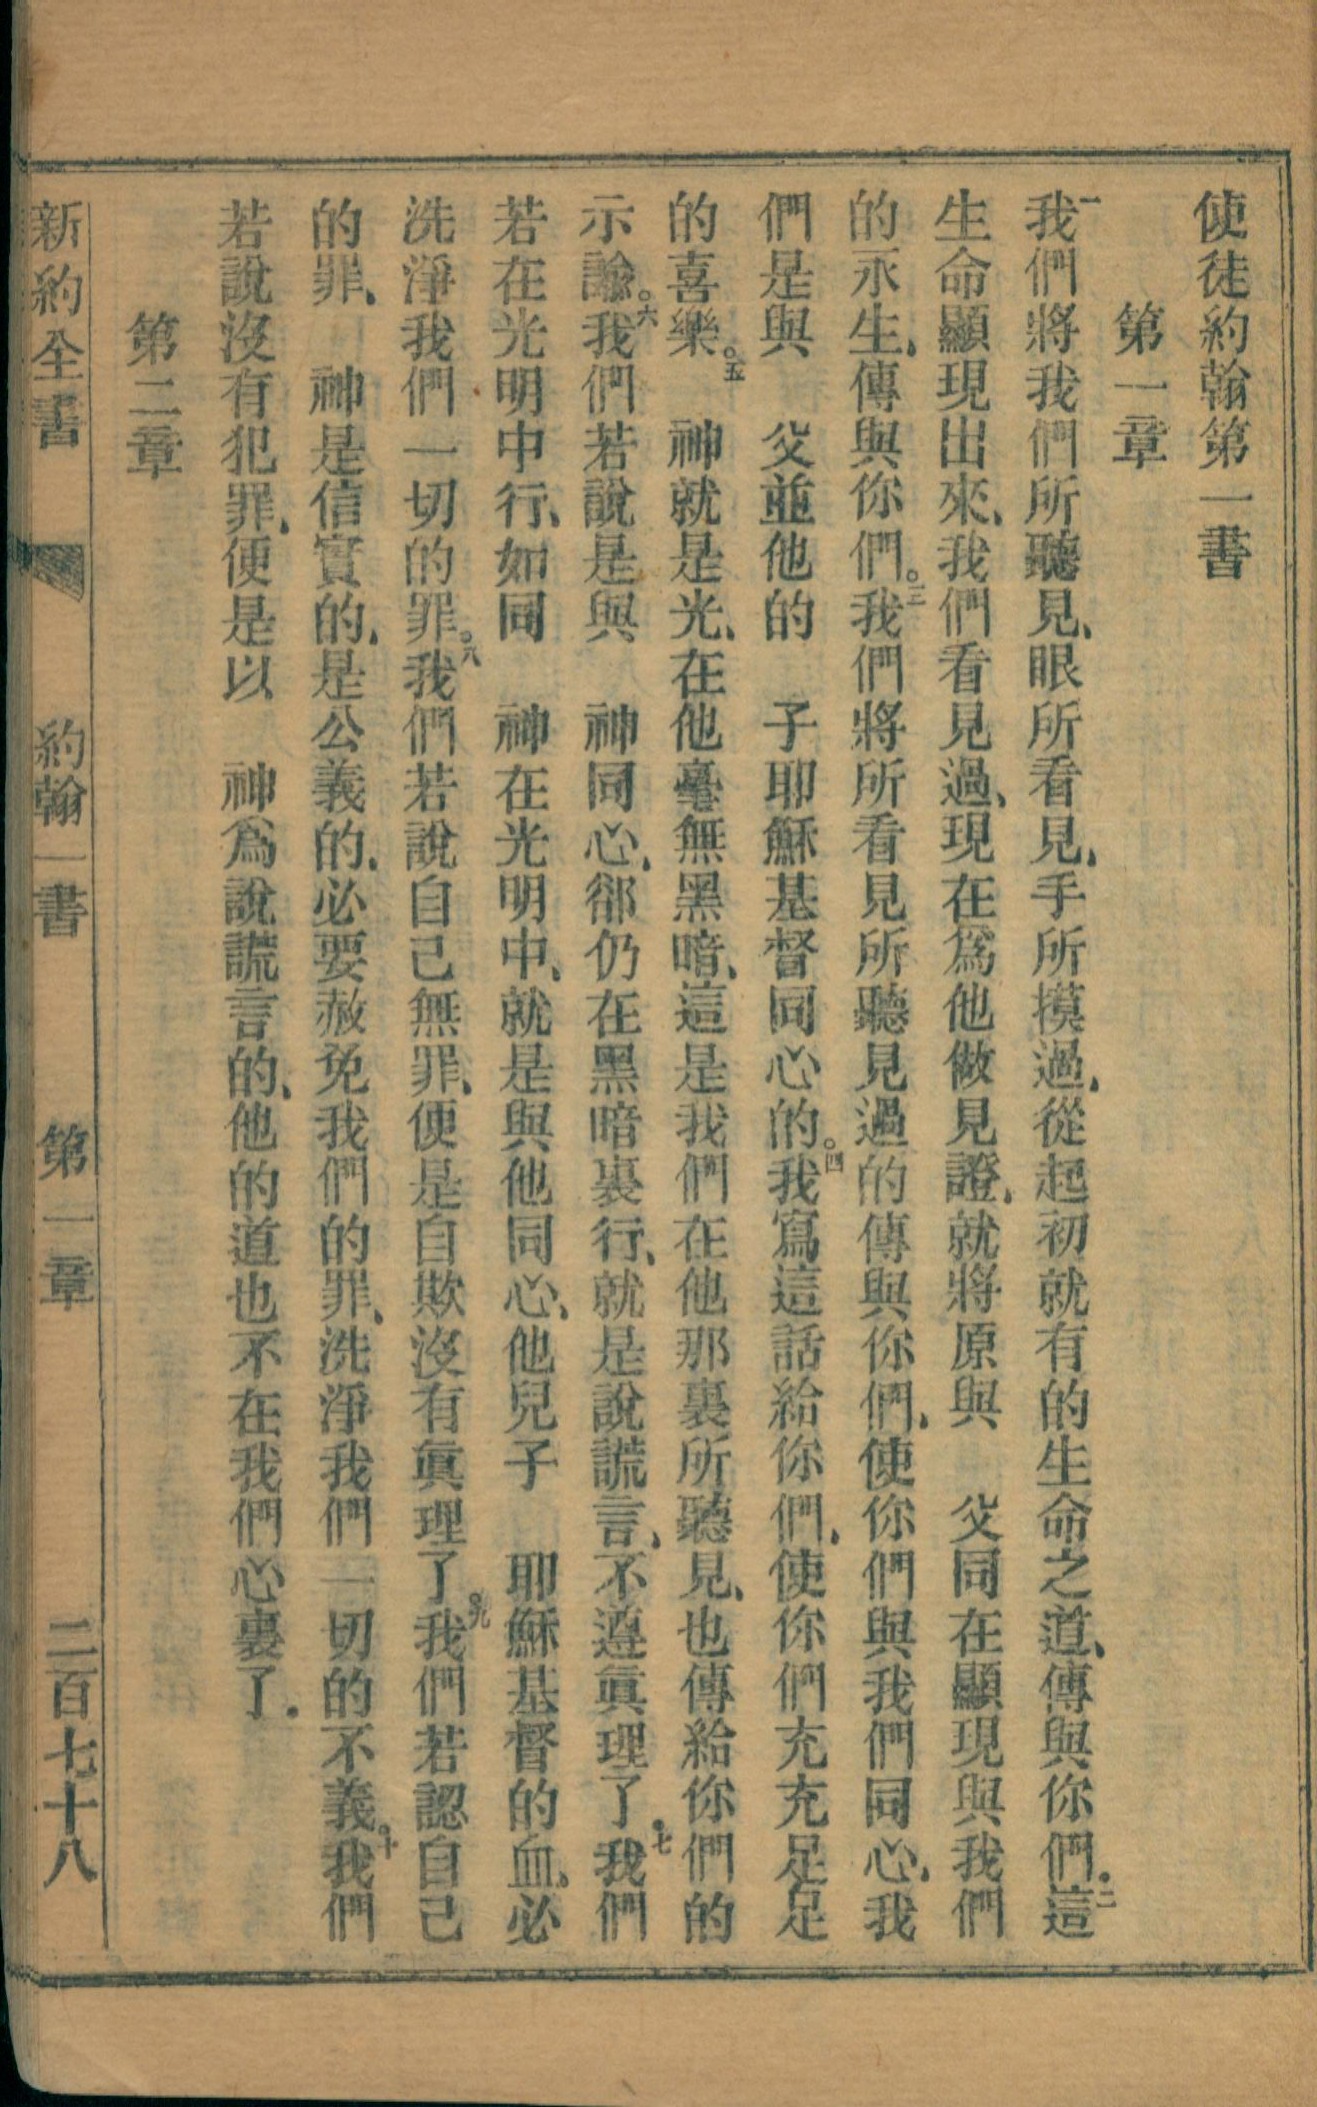 使徒約翰第一書
第一章
一我們將我們所聽見、眼所看見、手所摸過、從起初就有的生命之道、傳與你們。二這
生命顯現出來、我們看見過、現在爲他做見證、就將原與　父同在顯現與我們
的永生、傳與你們。三我們將所看見所聽見過的傳與你們、使你們與我們同心、我
們是與　父並他的　子耶穌基督同心的。四我寫這話給你們、使你們充充足足
的喜樂。五　神就是光、在他毫無黑暗、這是我們在他那裏所聽見、也傳給你們的
示諭。六我們若說是與　神同心、郤仍在黑暗裏行、就是說謊言、不遵眞理了。七我們
若在光明中行、如同　神在光明中、就是與他同心、他兒子　耶穌基督的血、必
洗淨我們一切的罪。八我們若說自己無罪、便是自欺沒有眞理了。九我們若認自己
的罪、　神是信實的、是公義的、必要赦免我們的罪、洗淨我們一切的不義。十我們
若說沒有犯罪、便是以　神爲說謊言的、他的道也不在我們心裏了。
第二章
新約全書　約翰一書　第一章　二百七十八